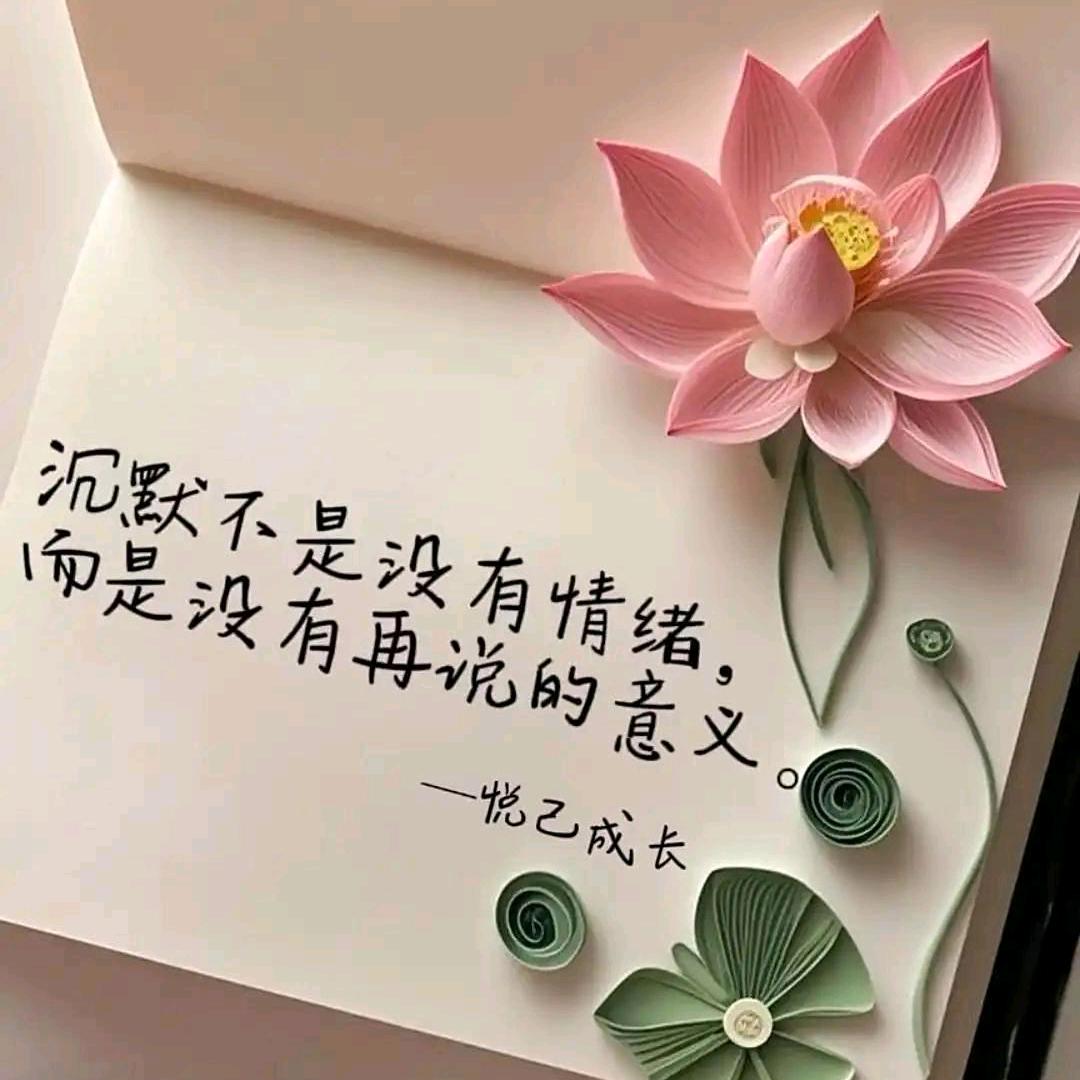 沉默不是没有情绪,
而是没有再说的意义。
—悦己成长